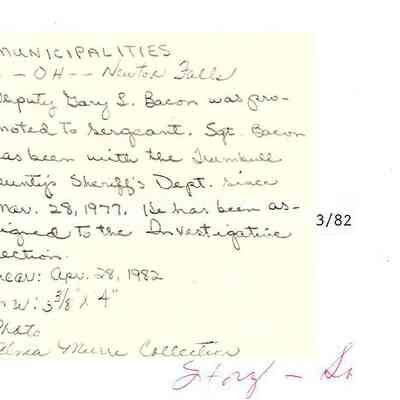 MUNICIPALITIES
- - OH - - Newton Falls
eputy Gary L. Bacon was pro-
moted to Sergeant. Sgt. Bacon
as been with the Trumbull
ounty's Sheriff's Dept. since
Mar. 28, 1977. He has been as-
3/82
igned to the Investigative
ection.
Apr. 28, 1982
W: 3 3/8" X 4"
Photo
Collection
Story -